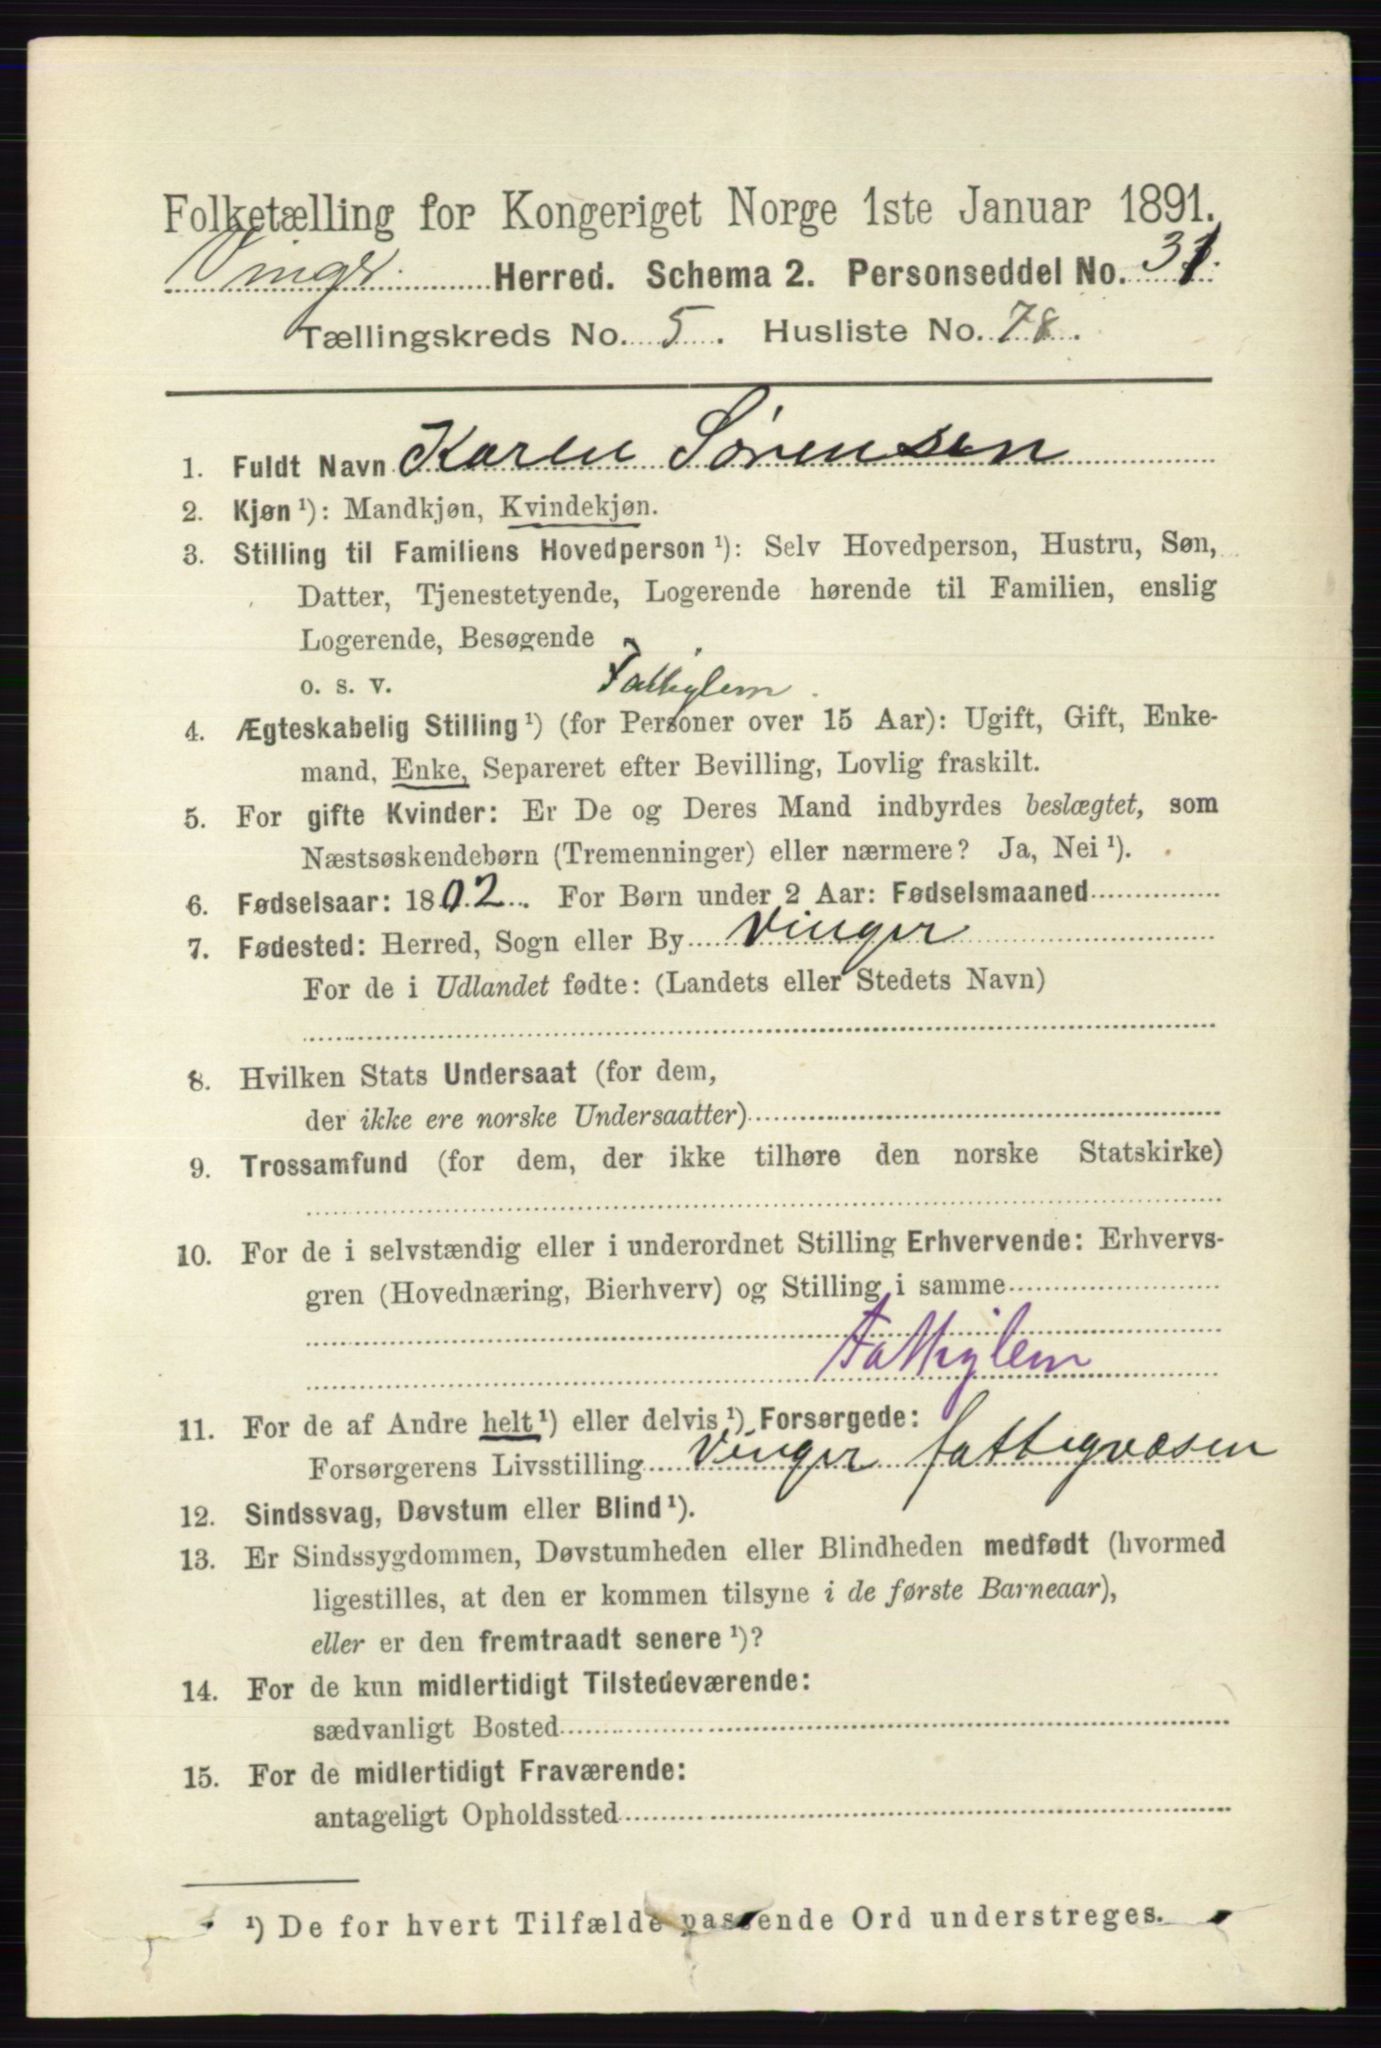 Folketælling for Kongeriget Norge 1ste Januar 1891.
Vinger Herred. Schema 2. Personseddel No. 31.
Tællingskreds No. 5. Husliste No. 78.
1. Fuldt Navn Karen Sørensen
2. Kjøn ¹): Mandkjøn, Kvindekjøn.
3. Stilling til Familiens Hovedperson ¹): Selv Hovedperson, Hustru, Søn,
Datter, Tjenestetyende, Logerende hørende til Familien, enslig
Logerende, Besøgende
o. s. v. Fattiglem.
4. Ægteskabelig Stilling ¹) (for Personer over 15 Aar): Ugift, Gift, Enke-
mand, Enke, Separeret efter Bevilling, Lovlig fraskilt.
5. For gifte Kvinder: Er De og Deres Mand indbyrdes beslægtet, som
Næstsøskendebørn (Tremenninger) eller nærmere? Ja, Nei ¹).
6. Fødselsaar: 1802. For Børn under 2 Aar: Fødselsmaaned
7. Fødested: Herred, Sogn eller By Vinger
For de i Udlandet fødte: (Landets eller Stedets Navn)
8. Hvilken Stats Undersaat (for dem,
der ikke ere norske Undersaatter)
9. Trossamfund (for dem, der ikke tilhøre den norske Statskirke)
10. For de i selvstændig eller i underordnet Stilling Erhvervende: Erhvervs-
gren (Hovednæring, Bierhverv) og Stilling i samme
Fattiglem
11. For de af Andre helt ¹) eller delvis ¹) Forsørgede:
Forsørgerens Livsstilling Vinger fattigvæsen
12. Sindssvag, Døvstum eller Blind ¹).
13. Er Sindssygdommen, Døvstumheden eller Blindheden medfødt (hvormed
ligestilles, at den er kommen tilsyne i de første Barneaar),
eller er den fremtraadt senere ¹)?
14. For de kun midlertidigt Tilstedeværende:
sædvanligt Bosted
15. For de midlertidigt Fraværende:
antageligt Opholdssted
¹) De for hvert Tilfælde passende Ord understreges.